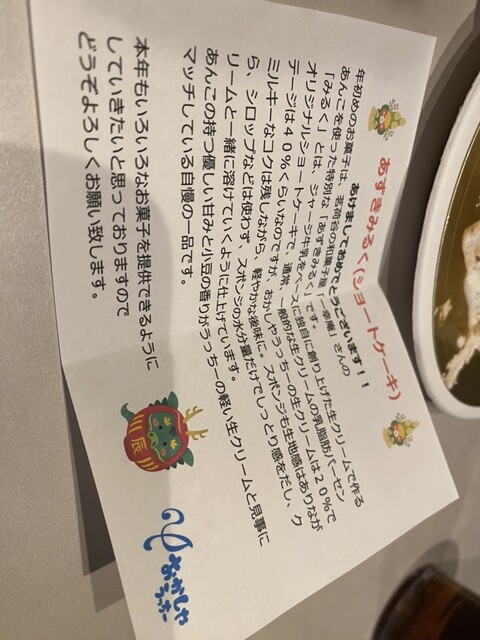 あずきみるく(ショートケーキ)
あけましておめでとうございます!!
年初めのお菓子は、茗荷谷の和菓子屋「一幸庵」さんの
あんこを使った特別な「あずきみるく」です。
「みるく」とは、ジャージー牛乳をベースに独自に創り上げた生クリームで作る
オリジナルショートケーキで、通常、一般的な生クリームの乳脂肪パーセン
テージは40%くらいなのですが、おかしやうっちーの生クリームは20%で
ミルキーなコクは残しながら、軽やかな後味に。スポンジも生地感はありなが
ら、シロップなどは使わず、スポンジの水分量だけでしっとり感をだし、ク
リームと一緒に溶けていくように仕上げています。
あんこの持つ優しい甘みと小豆の香りがうっちーの軽い生クリームと見事に
マッチしている自慢の一品です。
本年もいろいろなお菓子を提供できるように
していきたいと思っておりますので
どうぞよろしくお願い致します。
辰
おかしや
うっちー